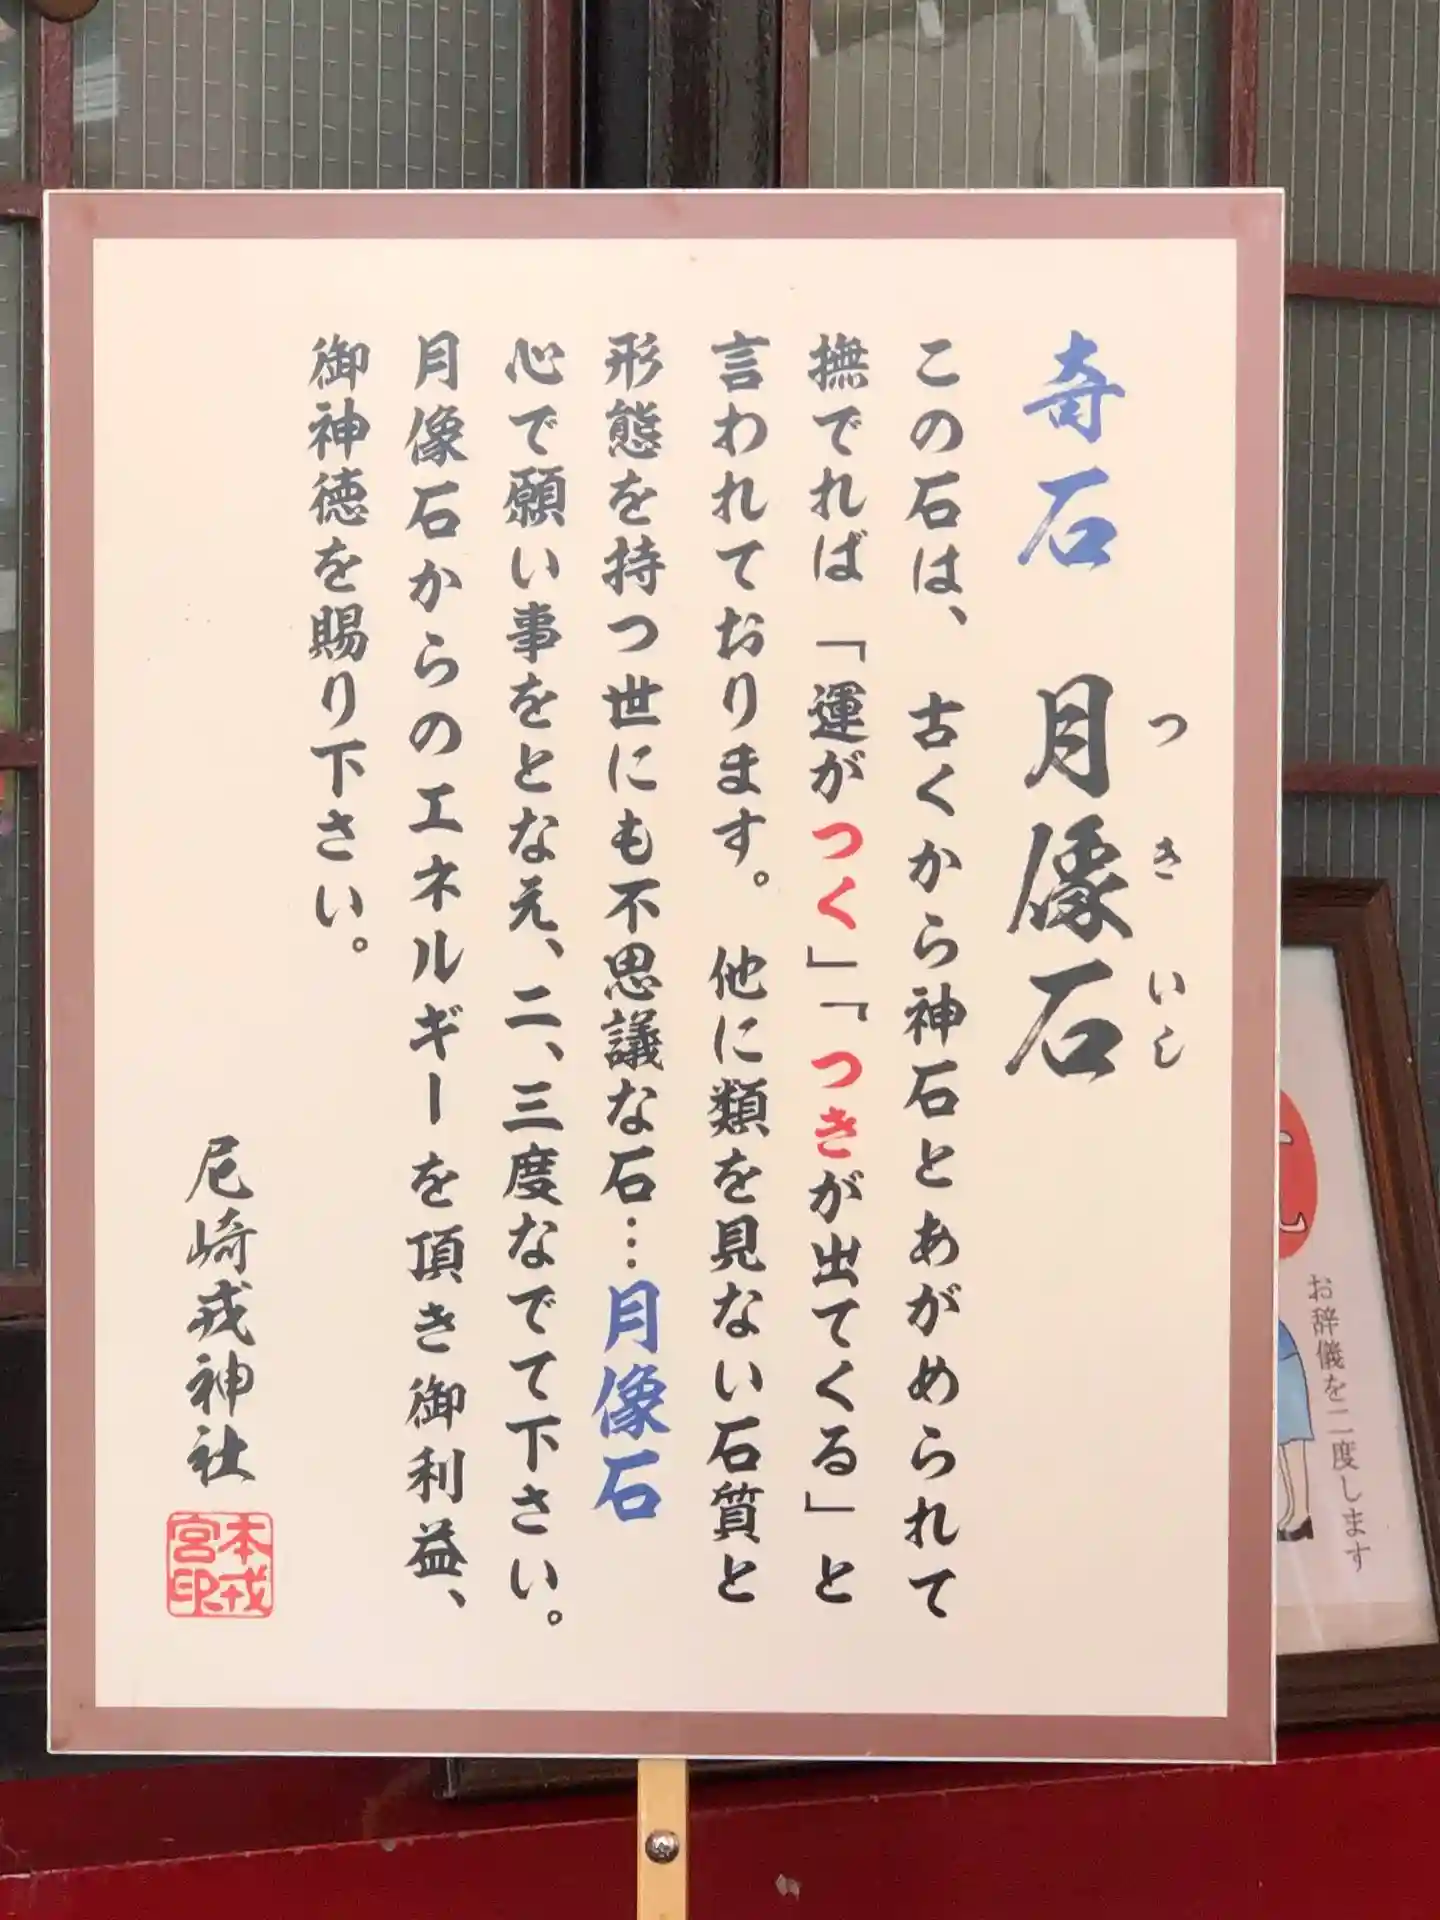 奇石　月像石
つきいし
この石は、　古くから神石とあがめられて
撫でれば「運がつく」「つきが出てくる」と
言われております。　他に類を見ない石質と
形態を持つ世にも不思議な石…月像石
心で願い事をとなえ、二、三度なでて下さい。
月像石からのエネルギーを頂き御利益、
御神徳を賜り下さい。
尼崎戎神社
本戎
宮印
お辞儀を二度します